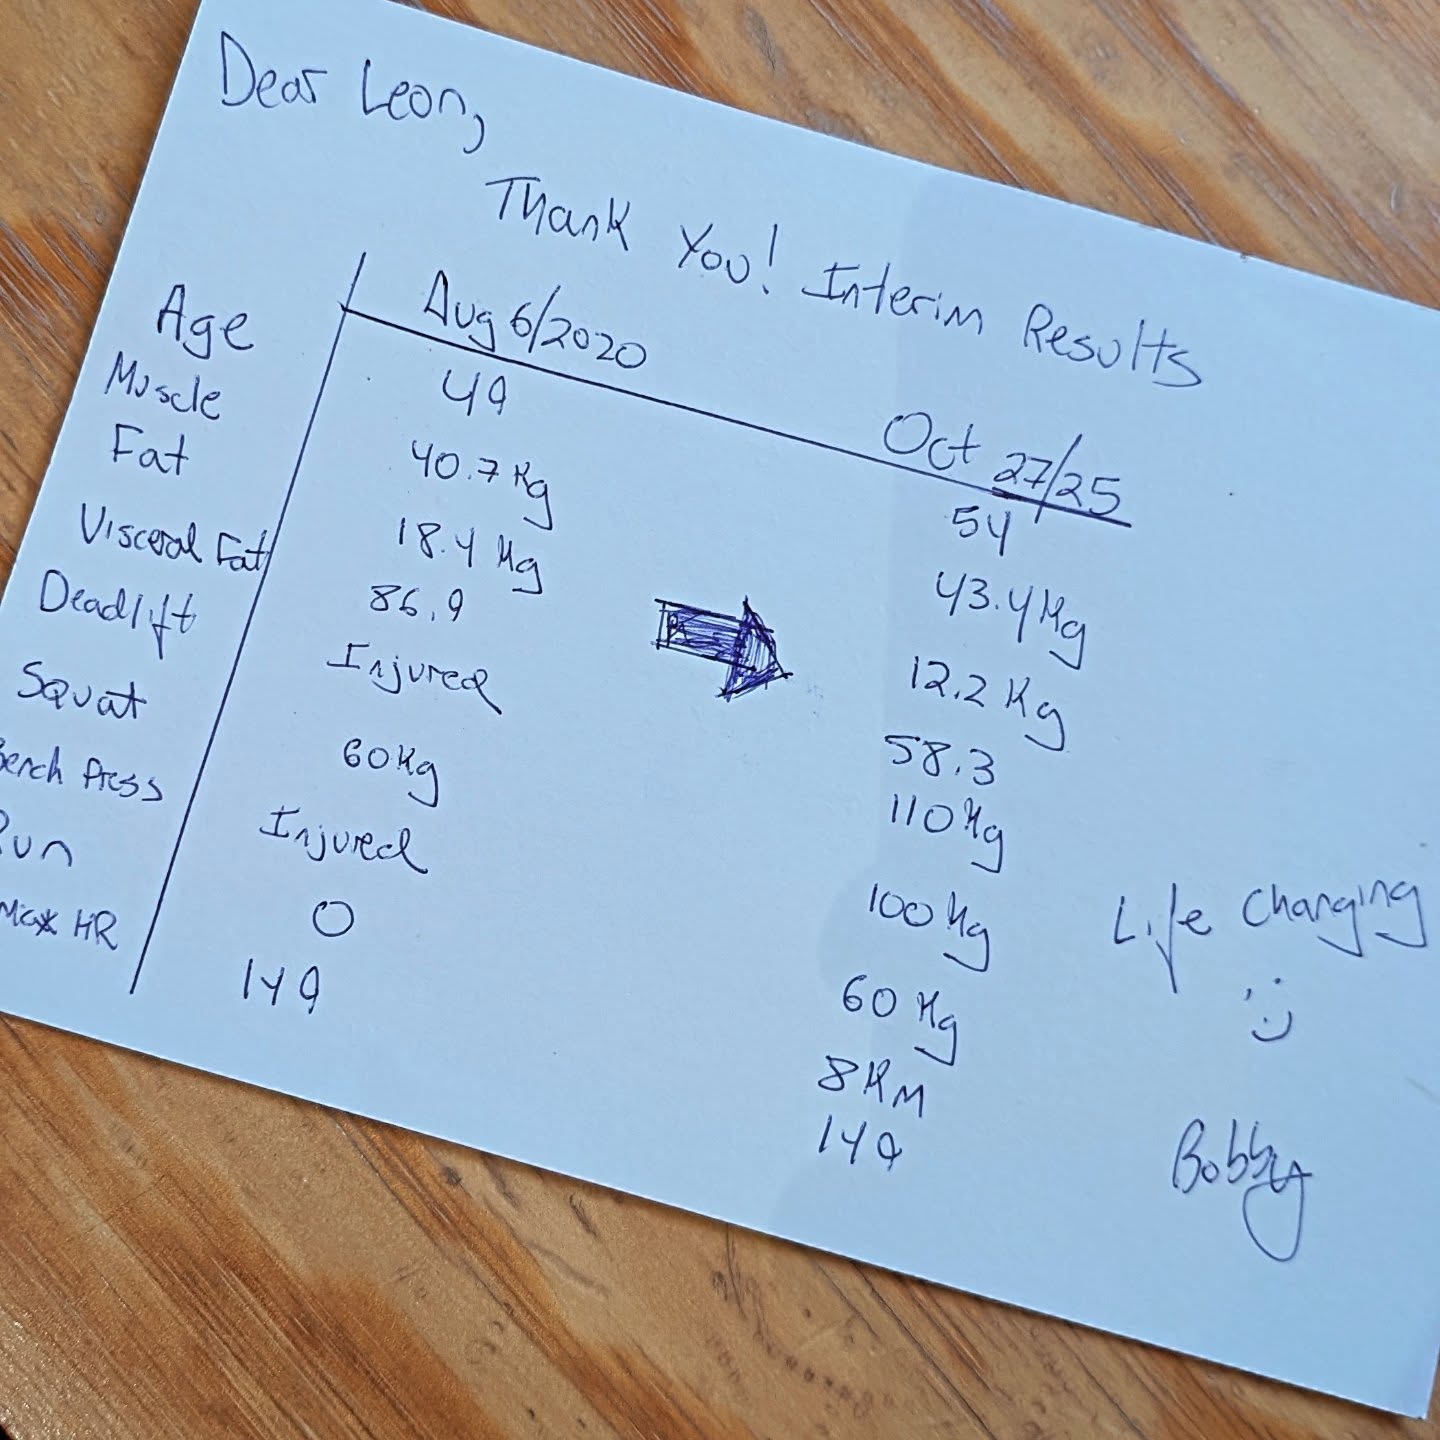 Dear Leon,
Thank You! Interim Results
Aug 6/2020 Oct 27/25
Age 49 54
Muscle 40.7 Kg 43.4 Kg
Fat 18.4 Kg 12.2 Kg
Visceral Fat 86.9 58.3
Deadlift Injured 110 Kg
Squat 60 Kg 100 Kg
Bench Press Injured 60 Kg
Run 0 8 KM
Max HR 149 149
Life Changing
:)
Bobby